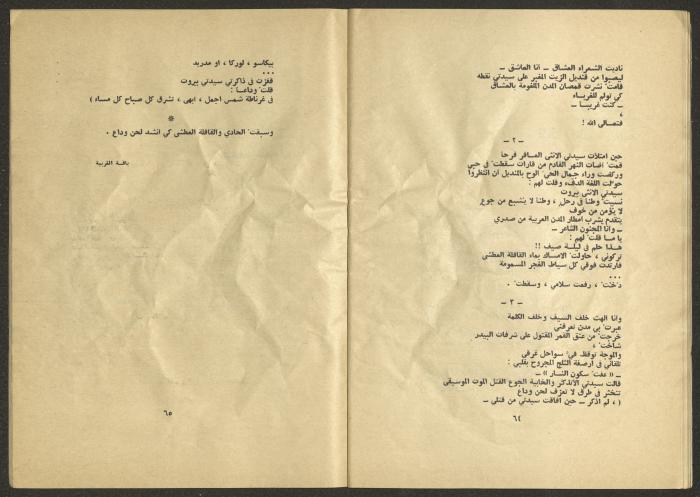 ناديت الشعراء العشاق ــ انا العاشق ــ
ليصبوا من قنديل الزيت المغبر على سيدتي نقطه
قامت نشرت قمصان المدن المفومة بالعشاق
كي تولم للغرباء
ــ كنت غريبا ــ
،
فتعالى الله !
ــ ٢ ــ
حين امتلات سيدتي الانثى العسافر فرحا
قمت اضأت النهر القادم من قارات سقطت في حبي
وركضت وراء جمال الحي الوح بالمنديل ان انتظروا
حولت اللغة الدفء وقلت لهم :
سيدتي الانثى بيروت
نسيت وطنا في رحل ، وطنا لا يشبع من جوع
لا يؤمن من خوف
يتقدم يشرب امطار المدن العربية من صدري
ــ وانا المجنون الشاعر ــ
يا ما قلت لهم :
هذا حلم في ليلة صيف !!
تركوني ، حاولت الامساك بماء القافلة العطشى
فارتدت فوقي كل سياط الفجر المسمومة
...
دخت ، رفعت سلامي ، وسقطت .
ــ ٣ ــ
وانا الهث خلف السيف وخلف الكلمة
عبرت بي مدن تعرفني
خرجت من عنق القمر المقتول على شرفات البيدر
شاخت ،
والموجة توقظ في سواحل غرقي
تلقاني في ارصفة الثلج المجروح بقلبي :
ــ « عدت سكون النار » ــ
قالت سيدتي الانذكر والخابية الجوع القتل الموت الموسيقى
تتخثر في طرق لا تعزف لحن وداع
( ، لم اذكر ــ حين افاقت سيدتي من قتلي ــ
٦٤
بيكاسو ، لوركا ، او مدريد
...
قفزت في ذاكرتي سيدتي بيروت
قلت وداعا :
في غرناطة شمس اجمل ، ابهى ، تشرق كل صباح كل مساء )
*
وسبقت الحادي والقافلة العطشى كي انشد لحن وداع .
باقة الغربية
٦٥